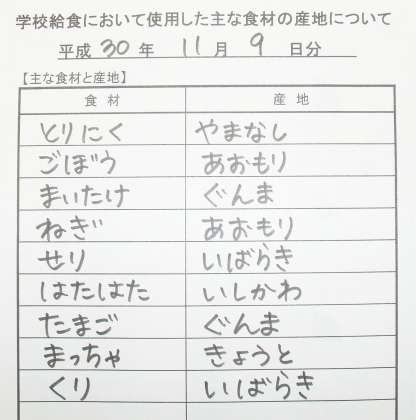 学校給食において使用した主な食材の産地について
平成 30 年 11 月 9 日分
【主な食材と産地】
食材 産地
とりにく やまなし
ごぼう あおもり
まいたけ ぐんま
ねぎ あおもり
せり いばらき
はたはた いしかわ
たまご ぐんま
まっちゃ きょうと
くり いばらき